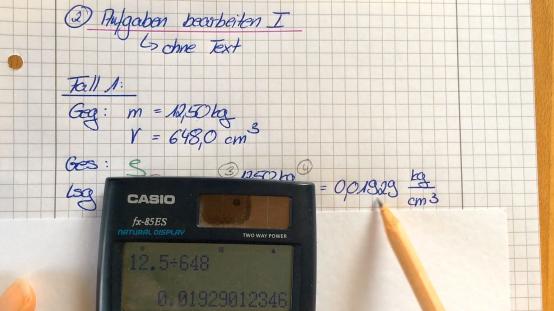 ② Aufgaben bearbeiten I
↳ ohne Text
Fall 1:
Geg: m = 12,50 kg
V = 648,0 cm³
Ges: ρ
③ 12,50 kg ④
Lsg = 0,01929 kg/cm³
CASIO
fx-85ES
NATURAL DISPLAY
TWO WAY POWER
12.5÷648
0.01929012346